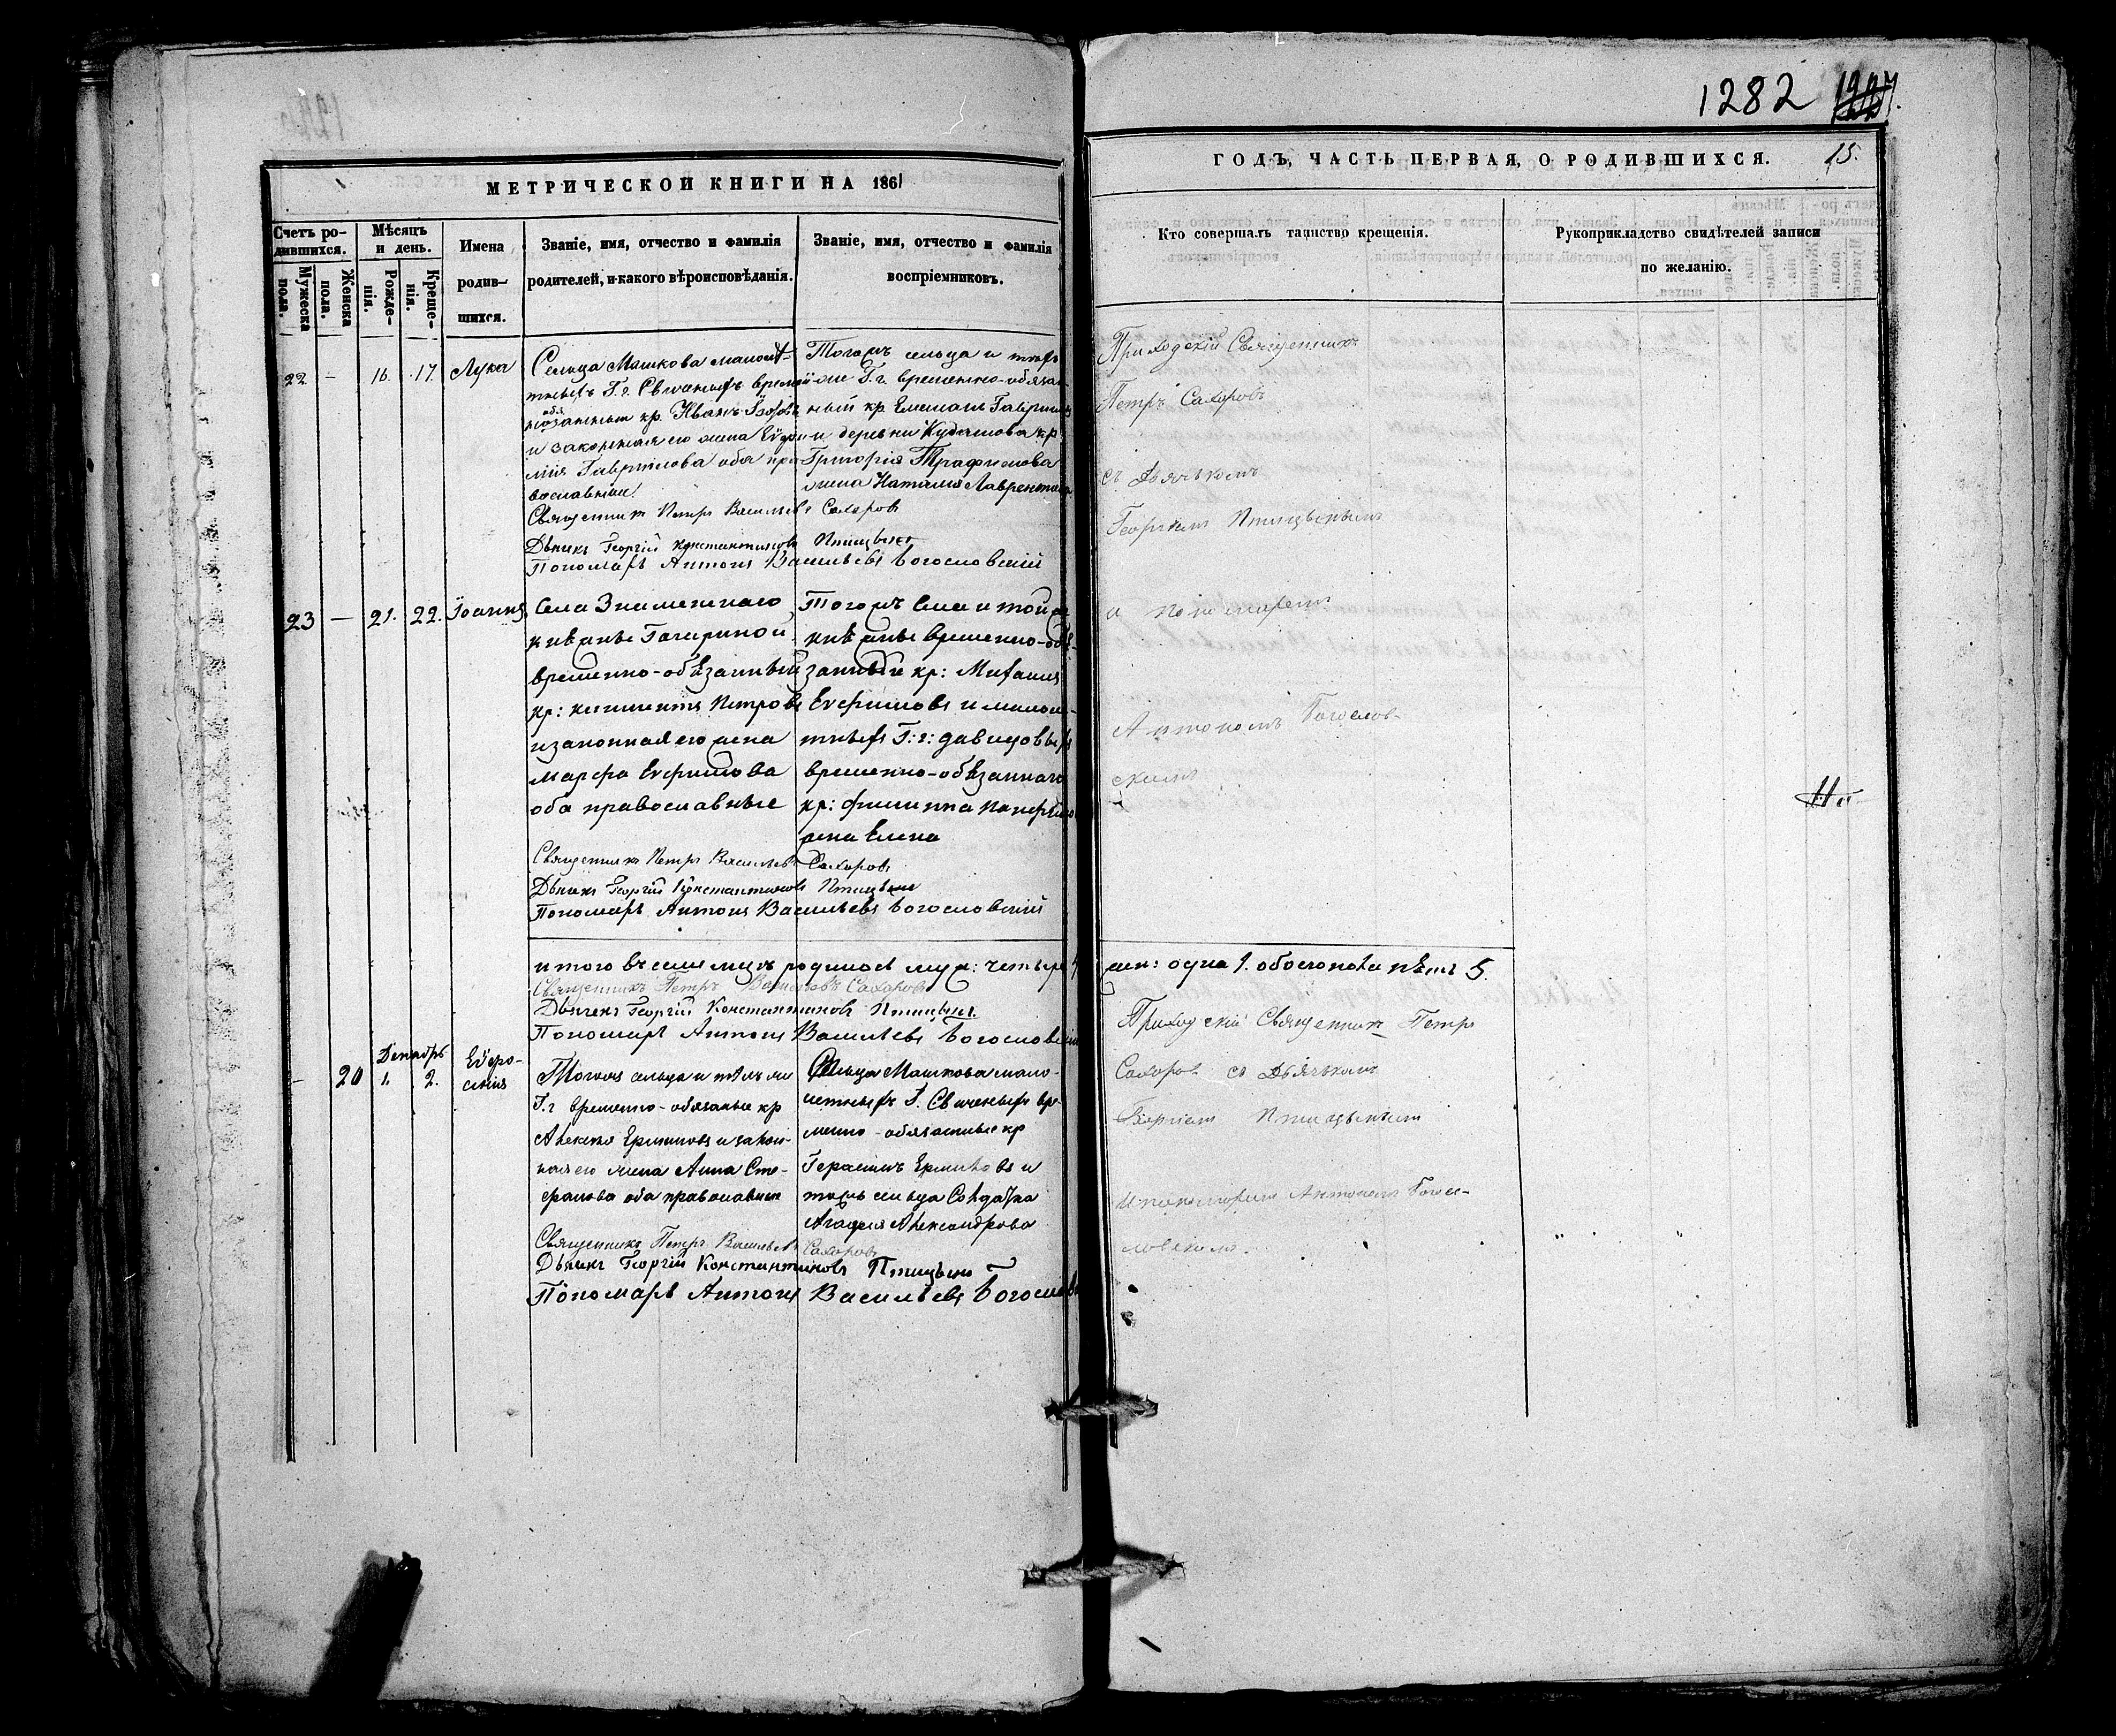 1282
МЕТРИЧЕСКОЙ КНИГИ НА 1861
ГОДЪ, ЧАСТЬ ПЕРВАЯ, О РОДИВШИХСЯ.
15.
Счетъ ро-
дившихся.
Мужеска
пола.
Женска
пола.
Мѣсяцъ
и день.
Рожде-
нія.
Креще-
нія.
Имена
родив-
шихся.
Званіе, имя, отчество и фамилія
родителей, и какого вѣроисповѣданія.
Званіе, имя, отчество и фамилія
воспріемниковъ.
Кто совершалъ таинство крещенія.
Рукоприкладство свидѣтелей записи
по желанію.
22
—
16.
17.
Лука
Сельца Машкова
кр. Иванъ
и законная его жена
Гаврилова оба пра-
вославные
Священникъ Петръ Васильевъ Сахаровъ
Дьячекъ Георгій Константиновъ Птицынъ
Пономарь Антонъ Васильевъ Богословскій
Тогожъ сельца и тѣхъ
же Г.г. временно-обязан-
ный кр
и деревни Кудашова кр
Григорія Трафимова
жена Наталія Лаврентьева
Приходскій Священникъ
Петръ Сахаровъ
съ Дьячькомъ
Георгіемъ Птицынымъ
и пономаремъ
Антономъ Богослов-
скимъ
23
—
21.
22.
Іоаннъ
Села Знаменскаго
княгинь Гагариной
временно-обязанный
кр: Климентъ Петровъ
и законная его жена
Марфа Ефимова
оба православные
Тогожъ Села и той же
временно-обя-
занный кр: Михаилъ
Ефимовъ и
Г: г: Давыдовыхъ
временно-обязаннаго
кр: Филиппа
жена Елена
Священникъ Петръ Васильевъ Сахаровъ
Дьячекъ Георгій Константиновъ Птицынъ
Пономарь Антонъ Васильевъ Богословскій
итого въ семъ мцѣ родилось муж: четыре 4
жен: одна 1. обоего пола пять 5.
Священникъ Петръ Васильевъ Сахаровъ
Дьячекъ Георгій Константиновъ Птицынъ.
Пономарь Антонъ Васильевъ Богословскій
Декабрь
—
20
1.
2.
Евфро-
синія
Тогожъ сельца и тѣхъ же
Г.г временно-обязаные кр
Алексѣй Ермиловъ и закон-
ная его жена Анна Сте-
фанова оба православные
Сельца Машкова мало-
лѣтныхъ Г. вре-
менно-обязанные кр
Герасимъ Ермиловъ и
тогожъ сельца Солдатка
Агафія Александрова
Священникъ Петръ Васильевъ Сахаровъ
Дьячекъ Георгій Константиновъ Птицынъ
Пономарь Антонъ Васильевъ
Приходскій Священникъ Петръ
Сахаровъ съ Дьячькомъ
Георгіемъ Птицынымъ
и пономаремъ Антономъ Богос-
ловскимъ.